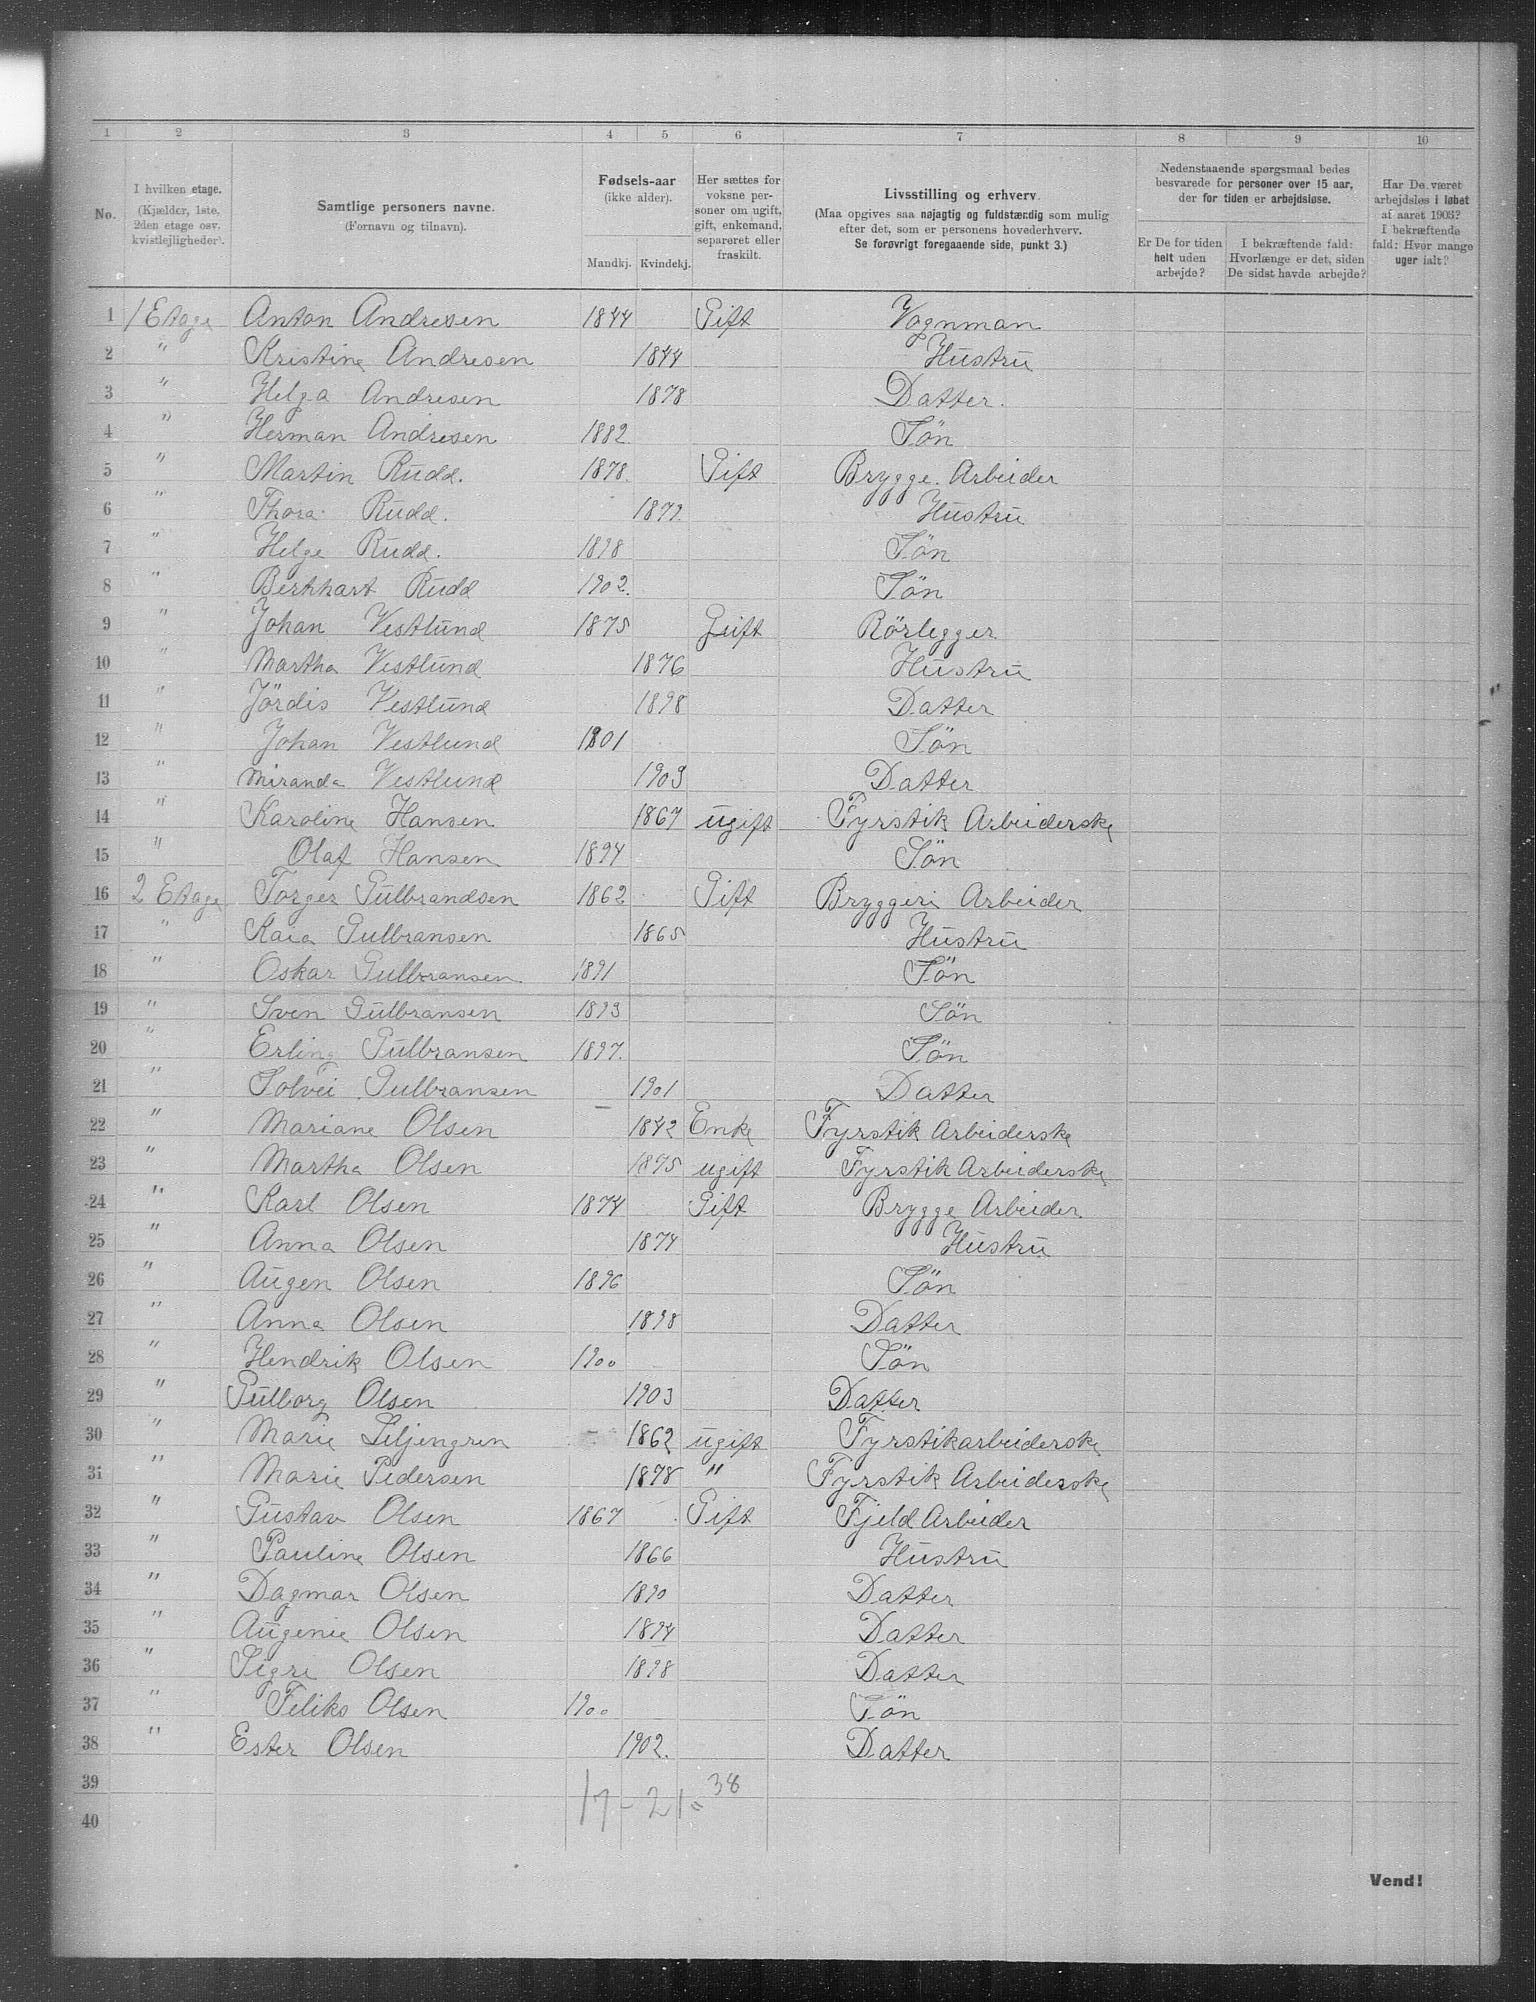 1 2 3 4 5 6 7 8 9 10
No.
I hvilken etage.
(Kjælder, 1ste, 2den etage osv. kvistlejligheder).
Samtlige personers navne.
(Fornavn og tilnavn).
Fødsels-aar
(ikke alder).
Mandkj. Kvindekj.
Her sættes for voksne personer om ugift, gift, enkemand, separeret eller fraskilt.
Livsstilling og erhverv.
(Maa opgives saa nøjagtig og fuldstændig som mulig efter det, som er personens hovederhverv.
Se forøvrigt foregaaende side, punkt 3.)
Nedenstaaende spørgsmaal bedes besvarede for personer over 15 aar, der for tiden er arbejdsløse.
Er De for tiden helt uden arbejde?
I bekræftende fald: Hvorlænge er det, siden De sidst havde arbejde?
Har De været arbejdsløs i løbet af aaret 1903? I bekræftende fald: Hvor mange uger ialt?
1 1 Etage Anton Andresen 1844 Gift Vognman
2 " Kristine Andresen 1844 Hustru
3 " Helga Andresen 1878 Datter.
4 " Herman Andresen 1882 Sön
5 " Martin Rudd. 1878 Gift Brygge. Arbeider
6 " Thora Rudd. 1872. Hustru
7 " Helge Rudd. 1898 Sön
8 " Berhhart Rudd 1902. Sön
9 " Johan Vestlund 1875 Geift Rörlegger
10 " Martha Vestlund 1876 Hustru
11 " Jördis Vestlund 1898 Datter
12 " Johan Vestlund 1901 Sön
13 " Miranda Vestlund 1903 Datter
14 " Karoline Hansen 1867 ugift Fyrstik Arbeiderske
15 " Olaf Hansen 1894 Sön
16 2 Etage Torger Gulbrandsen 1862 Gift Bryggeri Arbeider
17 " Kaia Gulbransen 1865 Hustru
18 " Oskar Gulbransen 1891 Sön
19 " Sven Gulbransen 1893 Sön
20 " Erling Gulbransen 1897. Sön
21 " Solvei Gulbransen 1901 Datter
22 " Mariane Olsen 1842 Enke Fyrstik Arbeiderske
23 " Martha Olsen 1875 ugift Fyrstik Arbeiderske
24 " Karl Olsen 1874 Gift Brygge Arbeider
25 " Anna Olsen 1874 Hustru
26 " Augen Olsen 1896 Sön
27 " Anna Olsen 1898 Datter
28 " Hendrik Olsen 1900 Sön
29 " Gulborg Olsen 1903 Datter
30 " Marie Liljengren 1862 ugift Fyrstikarbeiderske
31 " Marie Pedersen 1878 " Fyrstik Arbeiderske
32 " Gustav Olsen 1867 Gift Fjeld Arbeider
33 " Pauline Olsen 1866 Hustru
34 " Dagmar Olsen 1890 Datter
35 " Augenie Olsen 1894 Datter
36 " Sigri Olsen 1898 Datter
37 " Feliks Olsen 1900 Sön
38 " Ester Olsen 1902. Datter
39
17 - 21 " 38
40
Vend!